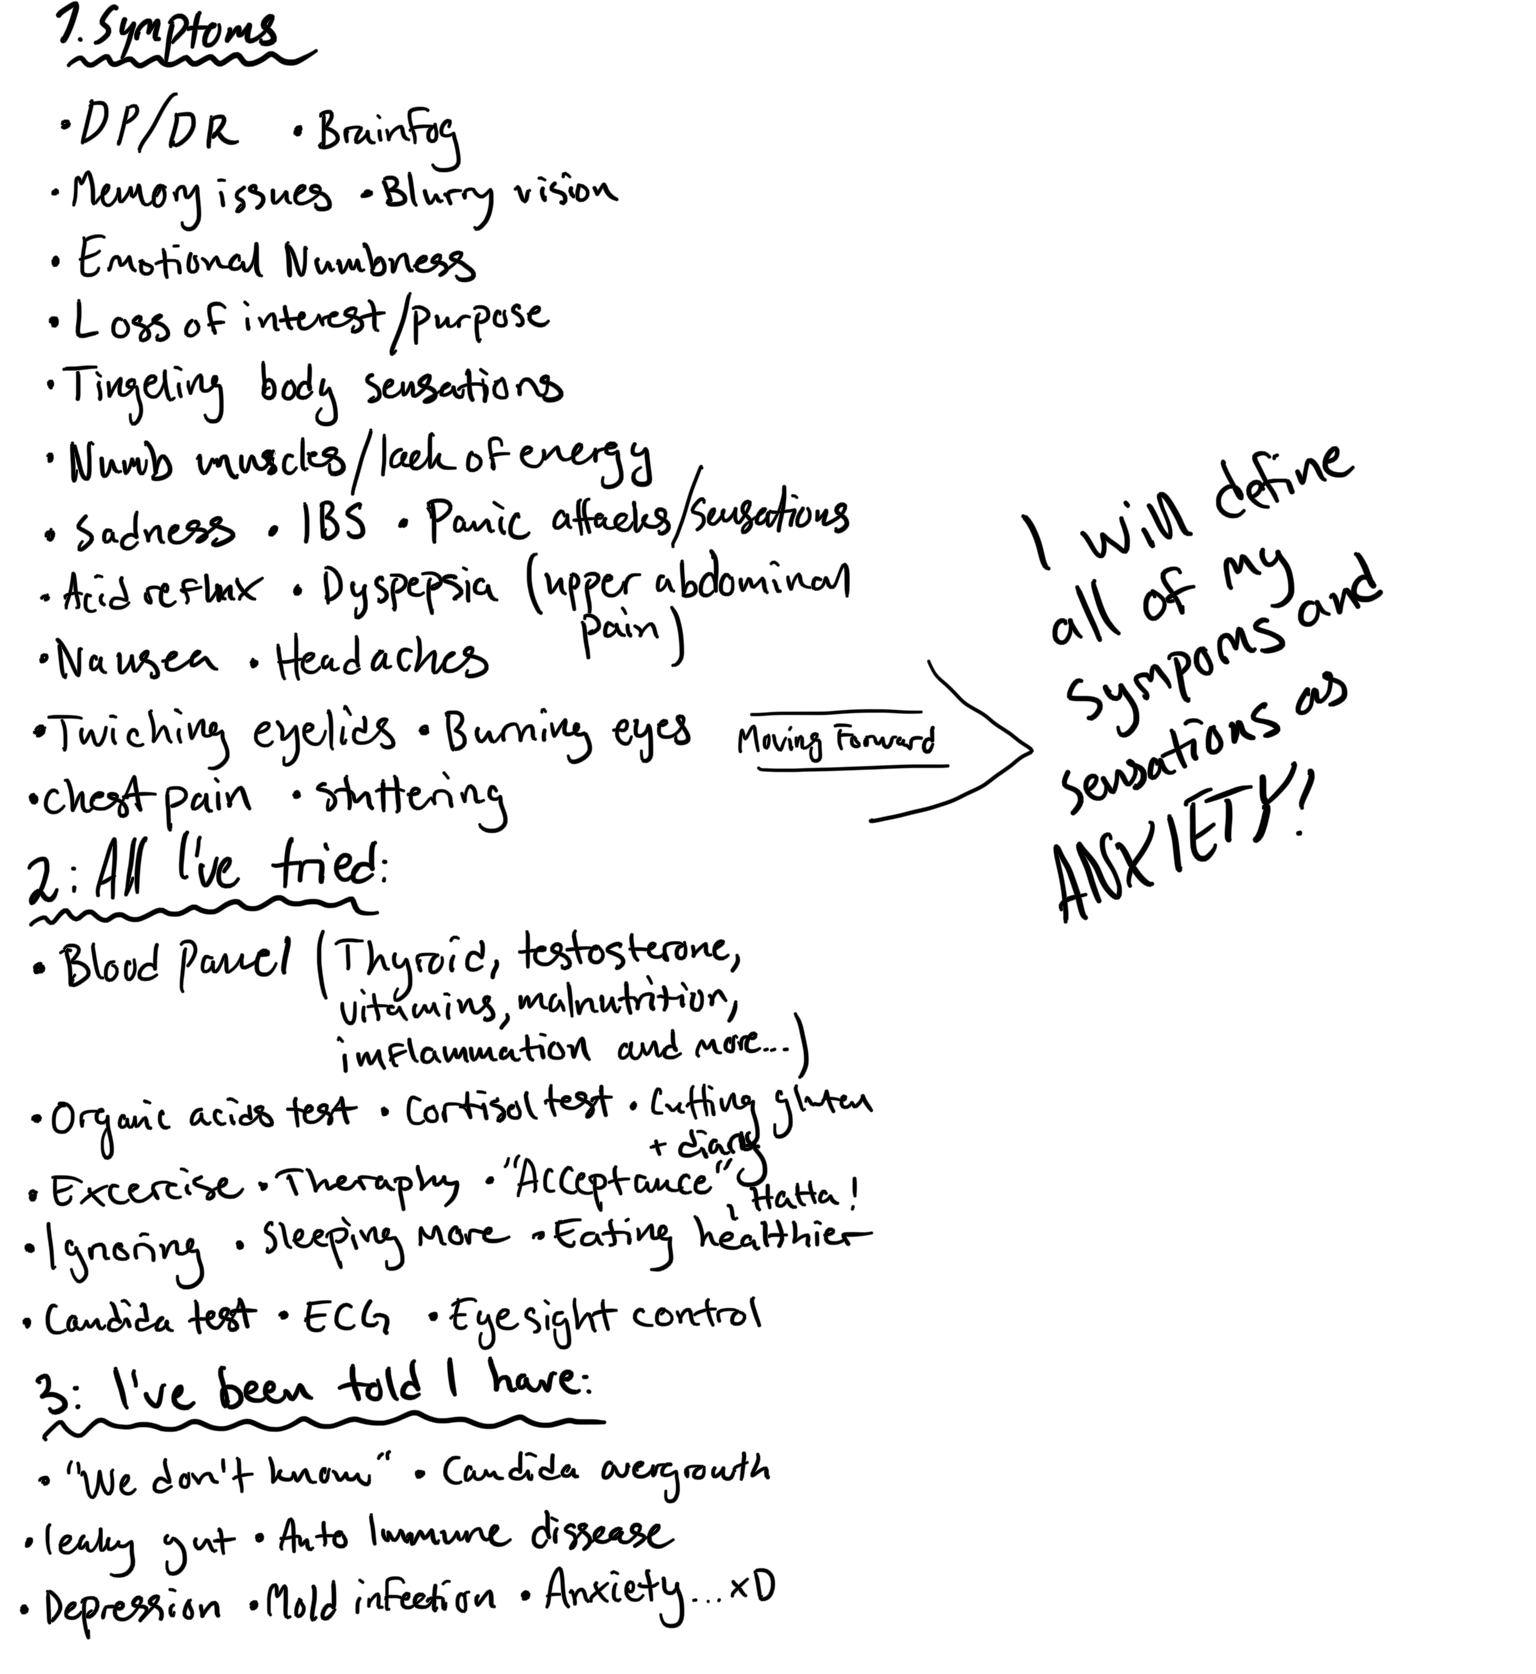 1. Symptoms
• DP/DR • Brainfog
• Memory issues • Blurry vision
• Emotional Numbness
• Loss of interest/purpose
• Tingeling body sensations
• Numb muscles/lack of energy
• Sadness • IBS • Panic attacks/sensations
• Acid reflux • Dyspepsia (upper abdominal
pain)
• Nausea • Headaches
• Twiching eyelids • Burning eyes
• Chest pain • stuttering
Moving Forward
I will define
all of my
Sympoms and
sensations as
ANXIETY!
2: All I've tried:
• Blood Panel (Thyroid, testosterone,
vitamins, malnutrition,
imflammation and more...)
• Organic acids test • Cortisol test • Cutting gluten
+ diary
• Excercise • Theraphy • "Acceptance"
, Hatha!
• Ignoring • Sleeping more • Eating healthier
• Candida test • ECG • Eyesight control
3: I've been told I have:
• "We don't know" • Candida overgrowth
• leaky gut • Auto Immune dissease
• Depression • Mold infection • Anxiety... xD